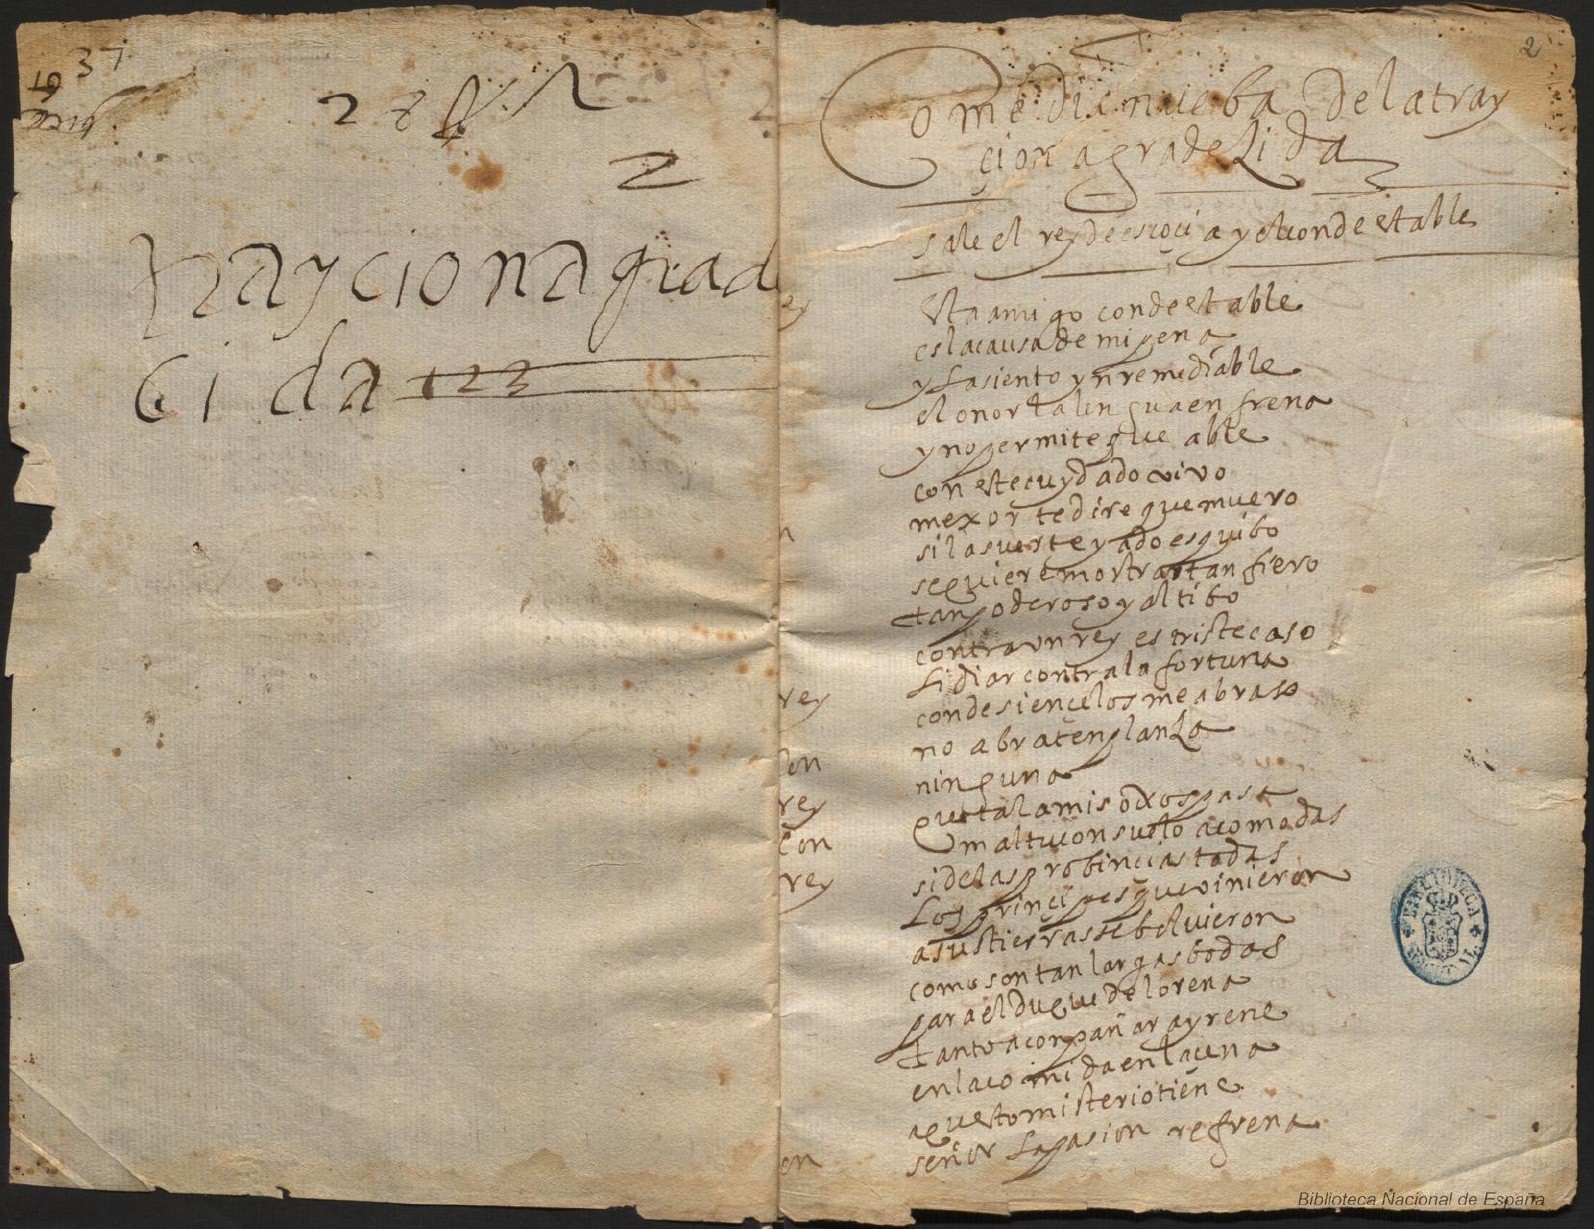 37
2
2
traycion agrade
cida 123
2
Comedia nueba de la tray
cion agradeZida
sale el rey de escocia y el condeestable
Esta amigo condeestable
es la causa de mi pena
y La siento ynremediable
el onor la lengua enfrena
y no permite que able
con este cuydado vivo
mexor te dire que muero
si la suerte y ado esquibo
se quiere mostrar tan fiero
tan poderoso y altibo
contra un rey es triste caso
Lidiar contra la fortuna
con desiençelos me abraso
no abra tenplanZa
ninguna
que tal a mis ojos pasa
rey
con
mal tu consuelo acomodas
rey
si de las probincias todas
con
Los prinçipes que vinieron
rey
a sus tierras se bolvieron
como son tan largas bodas
para el duque de lorena
tanto aconpañar a yrene
en la comida en la çena
aquesto misterio tiene
on
señor La pasion refrena
BIBLIOTECA
Biblioteca Nacional de España